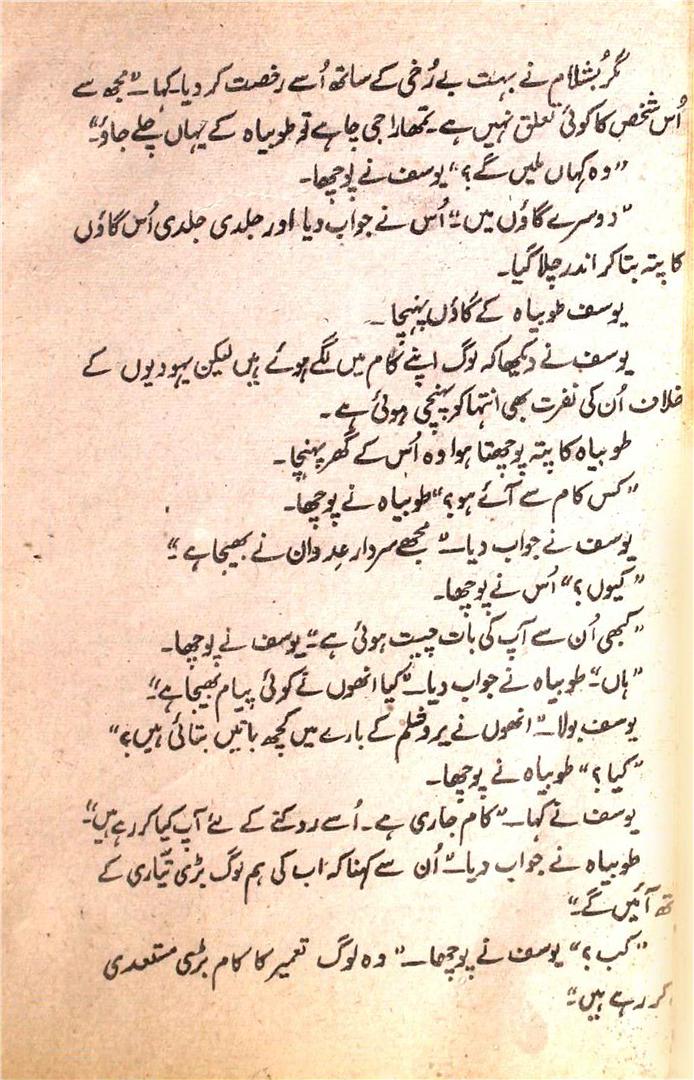 مگر بُشلام نے بہت بے رُخی کے ساتھ اُسے رخصت کر دیا۔ کہا۔ "مجھ سے
اُس شخص کا کوئی تعلق نہیں ہے۔ تمھارا جی چاہے تو طوبیاہ کے یہاں چلے جاؤ"۔
"وہ کہاں ملیں گے؟" یوسف نے پوچھا۔
"دوسرے گاؤں میں"۔ اُس نے جواب دیا اور جلدی جلدی اُس گاؤں
کا پتہ بتا کر اندر چلا گیا۔
یوسف طوبیاہ کے گاؤں پہنچا۔
یوسف نے دیکھا کہ لوگ اپنے کام میں لگے ہوئے ہیں لیکن یہودیوں کے
خلاف اُن کی نفرت بھی انتہا کو پہنچی ہوئی ہے۔
طوبیاہ کا پتہ پوچھتا ہوا وہ اُس کے گھر پہنچا۔
"کس کام سے آئے ہو؟" طوبیاہ نے پوچھا۔
یوسف نے جواب دیا۔ "مجھے سردار عدوان نے بھیجا ہے"۔
"کیوں؟" اُس نے پوچھا۔
"کبھی اُن سے آپ کی بات چیت ہوئی ہے"۔ یوسف نے پوچھا۔
"ہاں"۔ طوبیاہ نے جواب دیا۔ "کیا انھوں نے کوئی پیام بھیجا ہے"۔
یوسف بولا۔ "انھوں نے یروشلم کے بارے میں کچھ باتیں بتائی ہیں؟"
"کیا؟" طوبیاہ نے پوچھا۔
یوسف نے کہا۔ "کام جاری ہے۔ اُسے روکنے کے لئے آپ کیا کر رہے ہیں"۔
طوبیاہ نے جواب دیا۔ "اُن سے کہنا کہ اب کی ہم لوگ بڑی تیّاری کے
تھ آئیں گے"۔
"کب؟" یوسف نے پوچھا۔ "وہ لوگ تعمیر کا کام بڑی مستعدی
کر رہے ہیں"۔